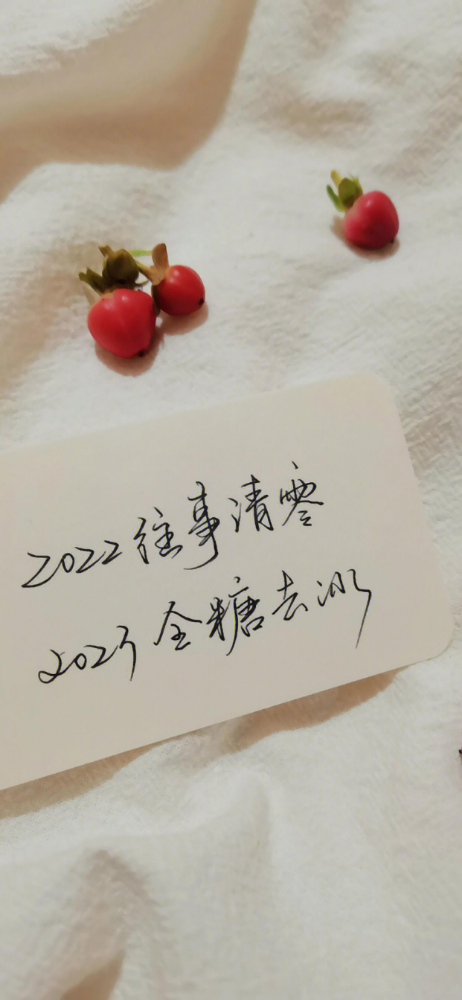 2022往事清零
2023全糖去冰